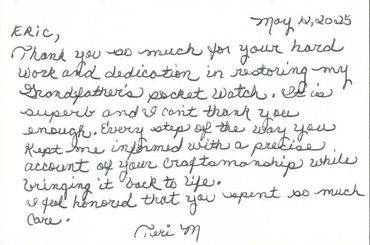 May 12, 2025
Eric,
Thank you so much for your hard
work and dedication in restoring my
Grandfather's pocket watch. It is
superb and I can't thank you
enough. Every step of the way you
kept me informed with a precise
account of your craftsmanship while
bringing it back to life.
I feel honored that you spent so much
care.
Teri M